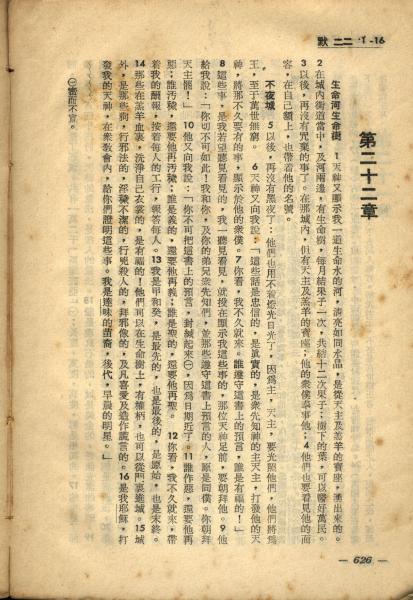 默 二二 ·1-16
第二十二章
生命河生命樹 1天神又顯示我一道生命水的河,淸亮如同水晶,是從天主及羔羊的寶座,湧出來的。
2在城內街道當中,及河兩邊,有生命樹,每月結果子一次,共結十二次果子;樹下的葉,可以醫好萬民。
3以後,再沒有咒棄的事了。在那城內,但有天主及羔羊的寶座;他的衆僕事奉他;4他們也要看見他的面
容,在自己額上,也帶着他的名號。
不夜城 5以後,再沒有黑夜了:他們也用不着燈光日光了,因爲主,天主,要光照他們,他們將爲
王,至于萬世無窮。 6天神又向我說:「這些話是忠信的,是眞實的,是衆先知神的主天主,打發他的天
神,將那不久要有的事,顯示於他的衆僕。7你看,我不久就來。誰遵守這書上的預言,誰是有福的!」
8這些事,是我若望聽見看見的,我一聽見看見,就投在顯示我這些事的,那位天神足前,要朝拜他。9他
給我說:「你切不可如此!我和你,及你的弟兄衆先知們,並那些遵守這書上預言的人,原是同僕。你朝拜
天主罷!」10他又向我說:「你不可把這書上的預言,封緘起來㊀,因爲日期近了。11誰作惡,還要他再
惡;誰汚穢,還要他再汚穢;誰是義的,還要他再義;誰是聖的,還要他再聖。 12你看,我不久就來,帶
着我的酬報,按着每人的工行,報答每人。13我是甲和癸,是最先的,也是最後的,是原始,也是末終。
14那些在羔羊血裏,洗淨自己衣裳的,是有福的!他們可以在生命樹上,有權柄,也可以從門裏進城。15城
外,是那些狗,行邪法的,淫穢不潔的,行兇殺人的,拜邪像的,及凡喜愛及造作謊言的。16是我耶穌,打
發我的天神,在衆敎會內,給你們證明這些事。我是達味的苗裔,後代,早晨的明星。」
㊀密而不宣。
— 626 —